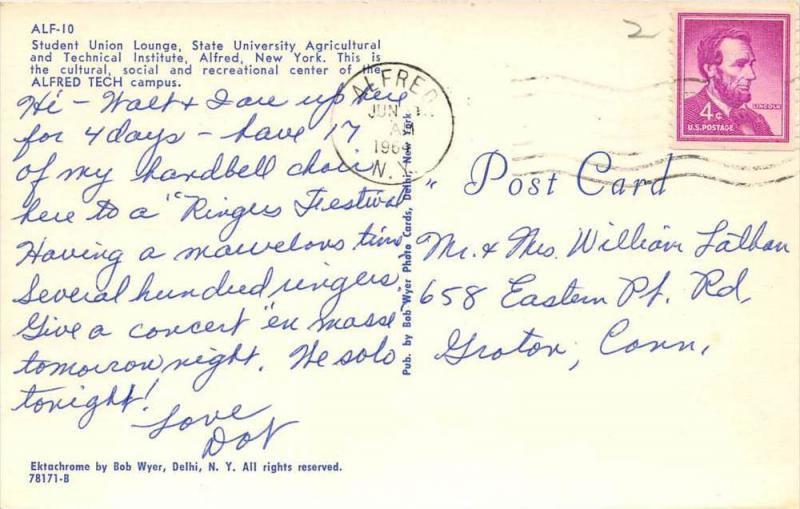 ALF-10
Student Union Lounge, State University Agricultural
and Technical Institute, Alfred, New York. This is
the cultural, social and recreational center of the
ALFRED TECH campus.
Hi - Walt & I are up here
for 4 days - have 17
of my handbell choir
here to a "Ringers Festival"
Having a marvelous time
Several hundred ringers,
Give a concert "en masse
tomorrow night. We solo
tonight!
Love
Dot
Ektachrome by Bob Wyer, Delhi, N. Y. All rights reserved.
78171-B
Pub. by Bob Wyer Photo Cards, Delhi, New York
2
ALFRED
JUN
AM
1964
N.Y.
4¢
LINCOLN
U.S. POSTAGE
Post Card
Mr. & Mrs. William Lathan
658 Eastern Pt. Rd,
Groton, Conn,